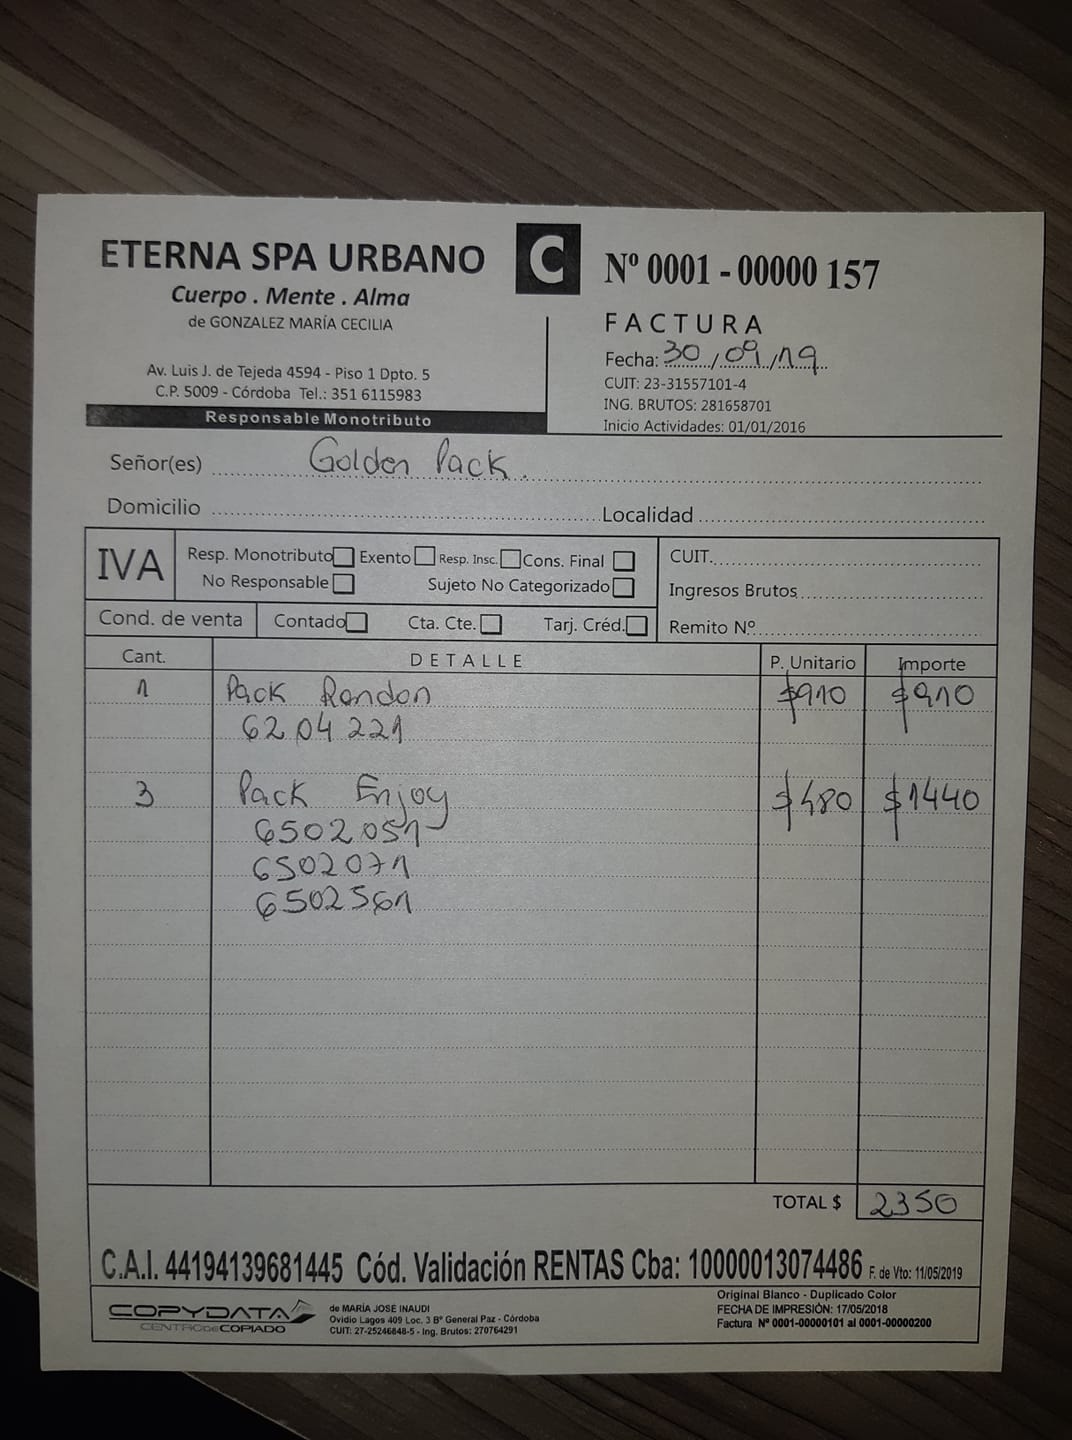 ETERNA SPA URBANO
Cuerpo . Mente . Alma
de GONZALEZ MARÍA CECILIA
Av. Luis J. de Tejeda 4594 - Piso 1 Dpto. 5
C.P. 5009 - Córdoba Tel.: 351 6115983
Responsable Monotributo
C
Nº 0001 - 00000 157
FACTURA
Fecha: 30/09/19
CUIT: 23-31557101-4
ING. BRUTOS: 281658701
Inicio Actividades: 01/01/2016
Señor(es) Golden Pack.
Domicilio Localidad
IVA
Resp. Monotributo Exento Resp. Insc. Cons. Final
No Responsable Sujeto No Categorizado
CUIT.
Ingresos Brutos
Cond. de venta Contado Cta. Cte. Tarj. Créd. Remito Nº
Cant. DETALLE P. Unitario Importe
1 Pack Randon $910 $910
6204221
3 Pack Enjoy $480 $1440
6502051
6502071
6502561
TOTAL $ 2350
C.A.I. 44194139681445 Cód. Validación RENTAS Cba: 10000013074486 F. de Vto: 11/05/2019
COPYDATA
CENTRO DE COPIADO
de MARÍA JOSÉ INAUDI
Ovidio Lagos 409 Loc. 3 Bº General Paz - Córdoba
CUIT: 27-25246848-5 - Ing. Brutos: 270764291
Original Blanco - Duplicado Color
FECHA DE IMPRESIÓN: 17/05/2018
Factura Nº 0001-00000101 al 0001-00000200